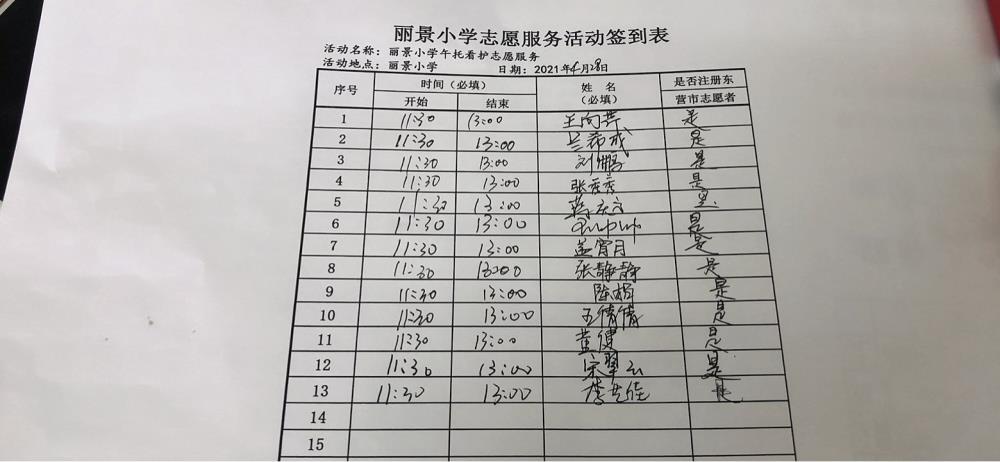 丽景小学志愿服务活动签到表
活动名称：丽景小学午托看护志愿服务
活动地点：丽景小学 日期：2021年4月28日
序号 时间（必填） 姓名（必填） 是否注册东营市志愿者
开始 结束
1 11:30 13:00 王向萍 是
2 11:30 13:00 兰希成 是
3 11:30 13:00 刘鹏 是
4 11:30 13:00 张秀秀 是
5 11:30 13:00 是
6 11:30 13:00 是
7 11:30 13:00 孟宵月 是
8 11:30 13:00 张静静 是
9 11:30 13:00 陈楠 是
10 11:30 13:00 王倩倩 是
11 11:30 13:00 黄健 是
12 11:30 13:00 宋翠云 是
13 11:30 13:00 李 佳 是
14
15